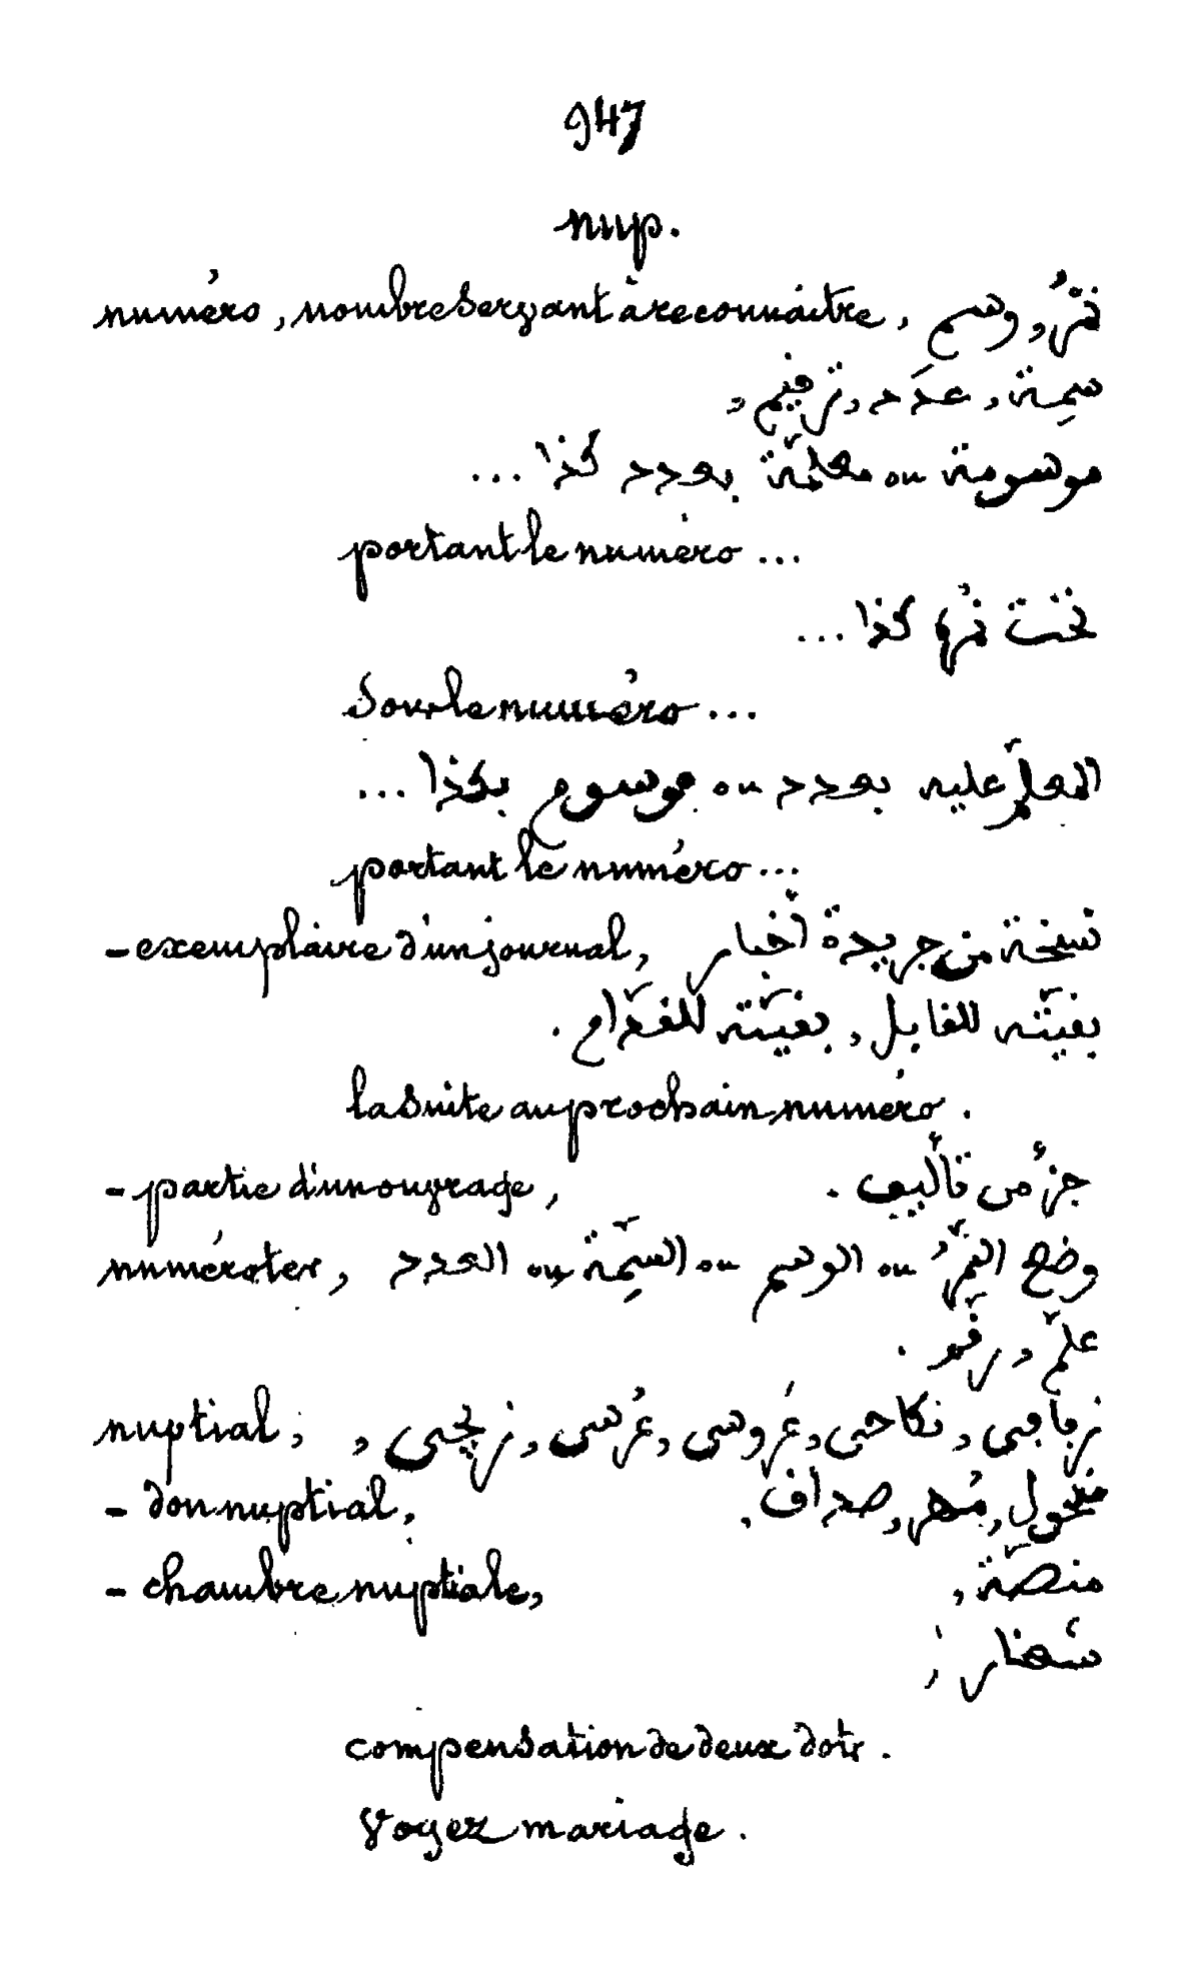 947
nup.
numéro, nombre servant à reconnaître, نمرُ, وسم
سِمِة, عدَد, ترقيم,
موسومة ou معلمّة بعدد كذا ...
portant le numéro ...
تحت نمُرا كذا ...
Sous le numéro ...
المعلّم عليه بعدد ou موسوم بكذا ...
portant le numéro ...
- exemplaire d'un journal, نسخة من جريدة أخبار
بقيّته للقابل, بقيّته للقدّام.
la suite au prochain numéro.
- partie d'un ouvrage, جزءُ من تأليف.
numéroter, وضع النِمرُ ou الوسم ou السِّمِة ou العدد
علّم, رقّم.
nuptial, زفافي, نكاحي, عَروسي, عُرسي,
- don nuptial, مهر, صداق.
- chambre nuptiale, منصّة,
شغار,
compensation de deux dots.
Voyez mariage.